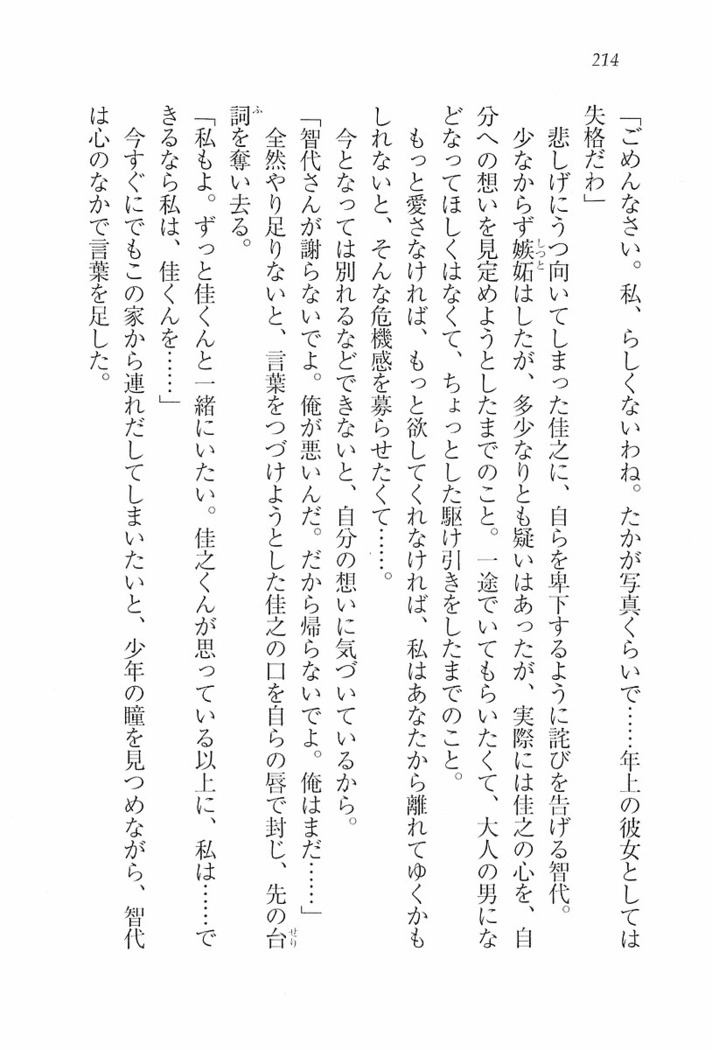 214
「ごめんなさい。私、らしくないわね。たかが写真くらいで……年上の彼女としては
失格だわ」
悲しげにうつ向いてしまった佳之に、自らを卑下するように詫びを告げる智代。
少なからず嫉妬はしたが、多少なりとも疑いはあったが、実際には佳之の心を、自
分への想いを見定めようとしたまでのこと。一途でいてもらいたくて、大人の男にな
どなってほしくはなくて、ちょっとした駆け引きをしたまでのこと。
もっと愛さなければ、もっと欲してくれなければ、私はあなたから離れてゆくかも
しれないと、そんな危機感を募らせたくて……。
今となっては別れるなどできないと、自分の想いに気づいているから。
「智代さんが謝らないでよ。俺が悪いんだ。だから帰らないでよ。俺はまだ……」
全然やり足りないと、言葉をつづけようとした佳之の口を自らの唇で封じ、先の台
詞を奪い去る。
「私もよ。ずっと佳くんと一緒にいたい。佳之くんが思っている以上に、私は……で
きるなら私は、佳くんを……」
今すぐにでもこの家から連れだしてしまいたいと、少年の瞳を見つめながら、智代
は心のなかで言葉を足した。